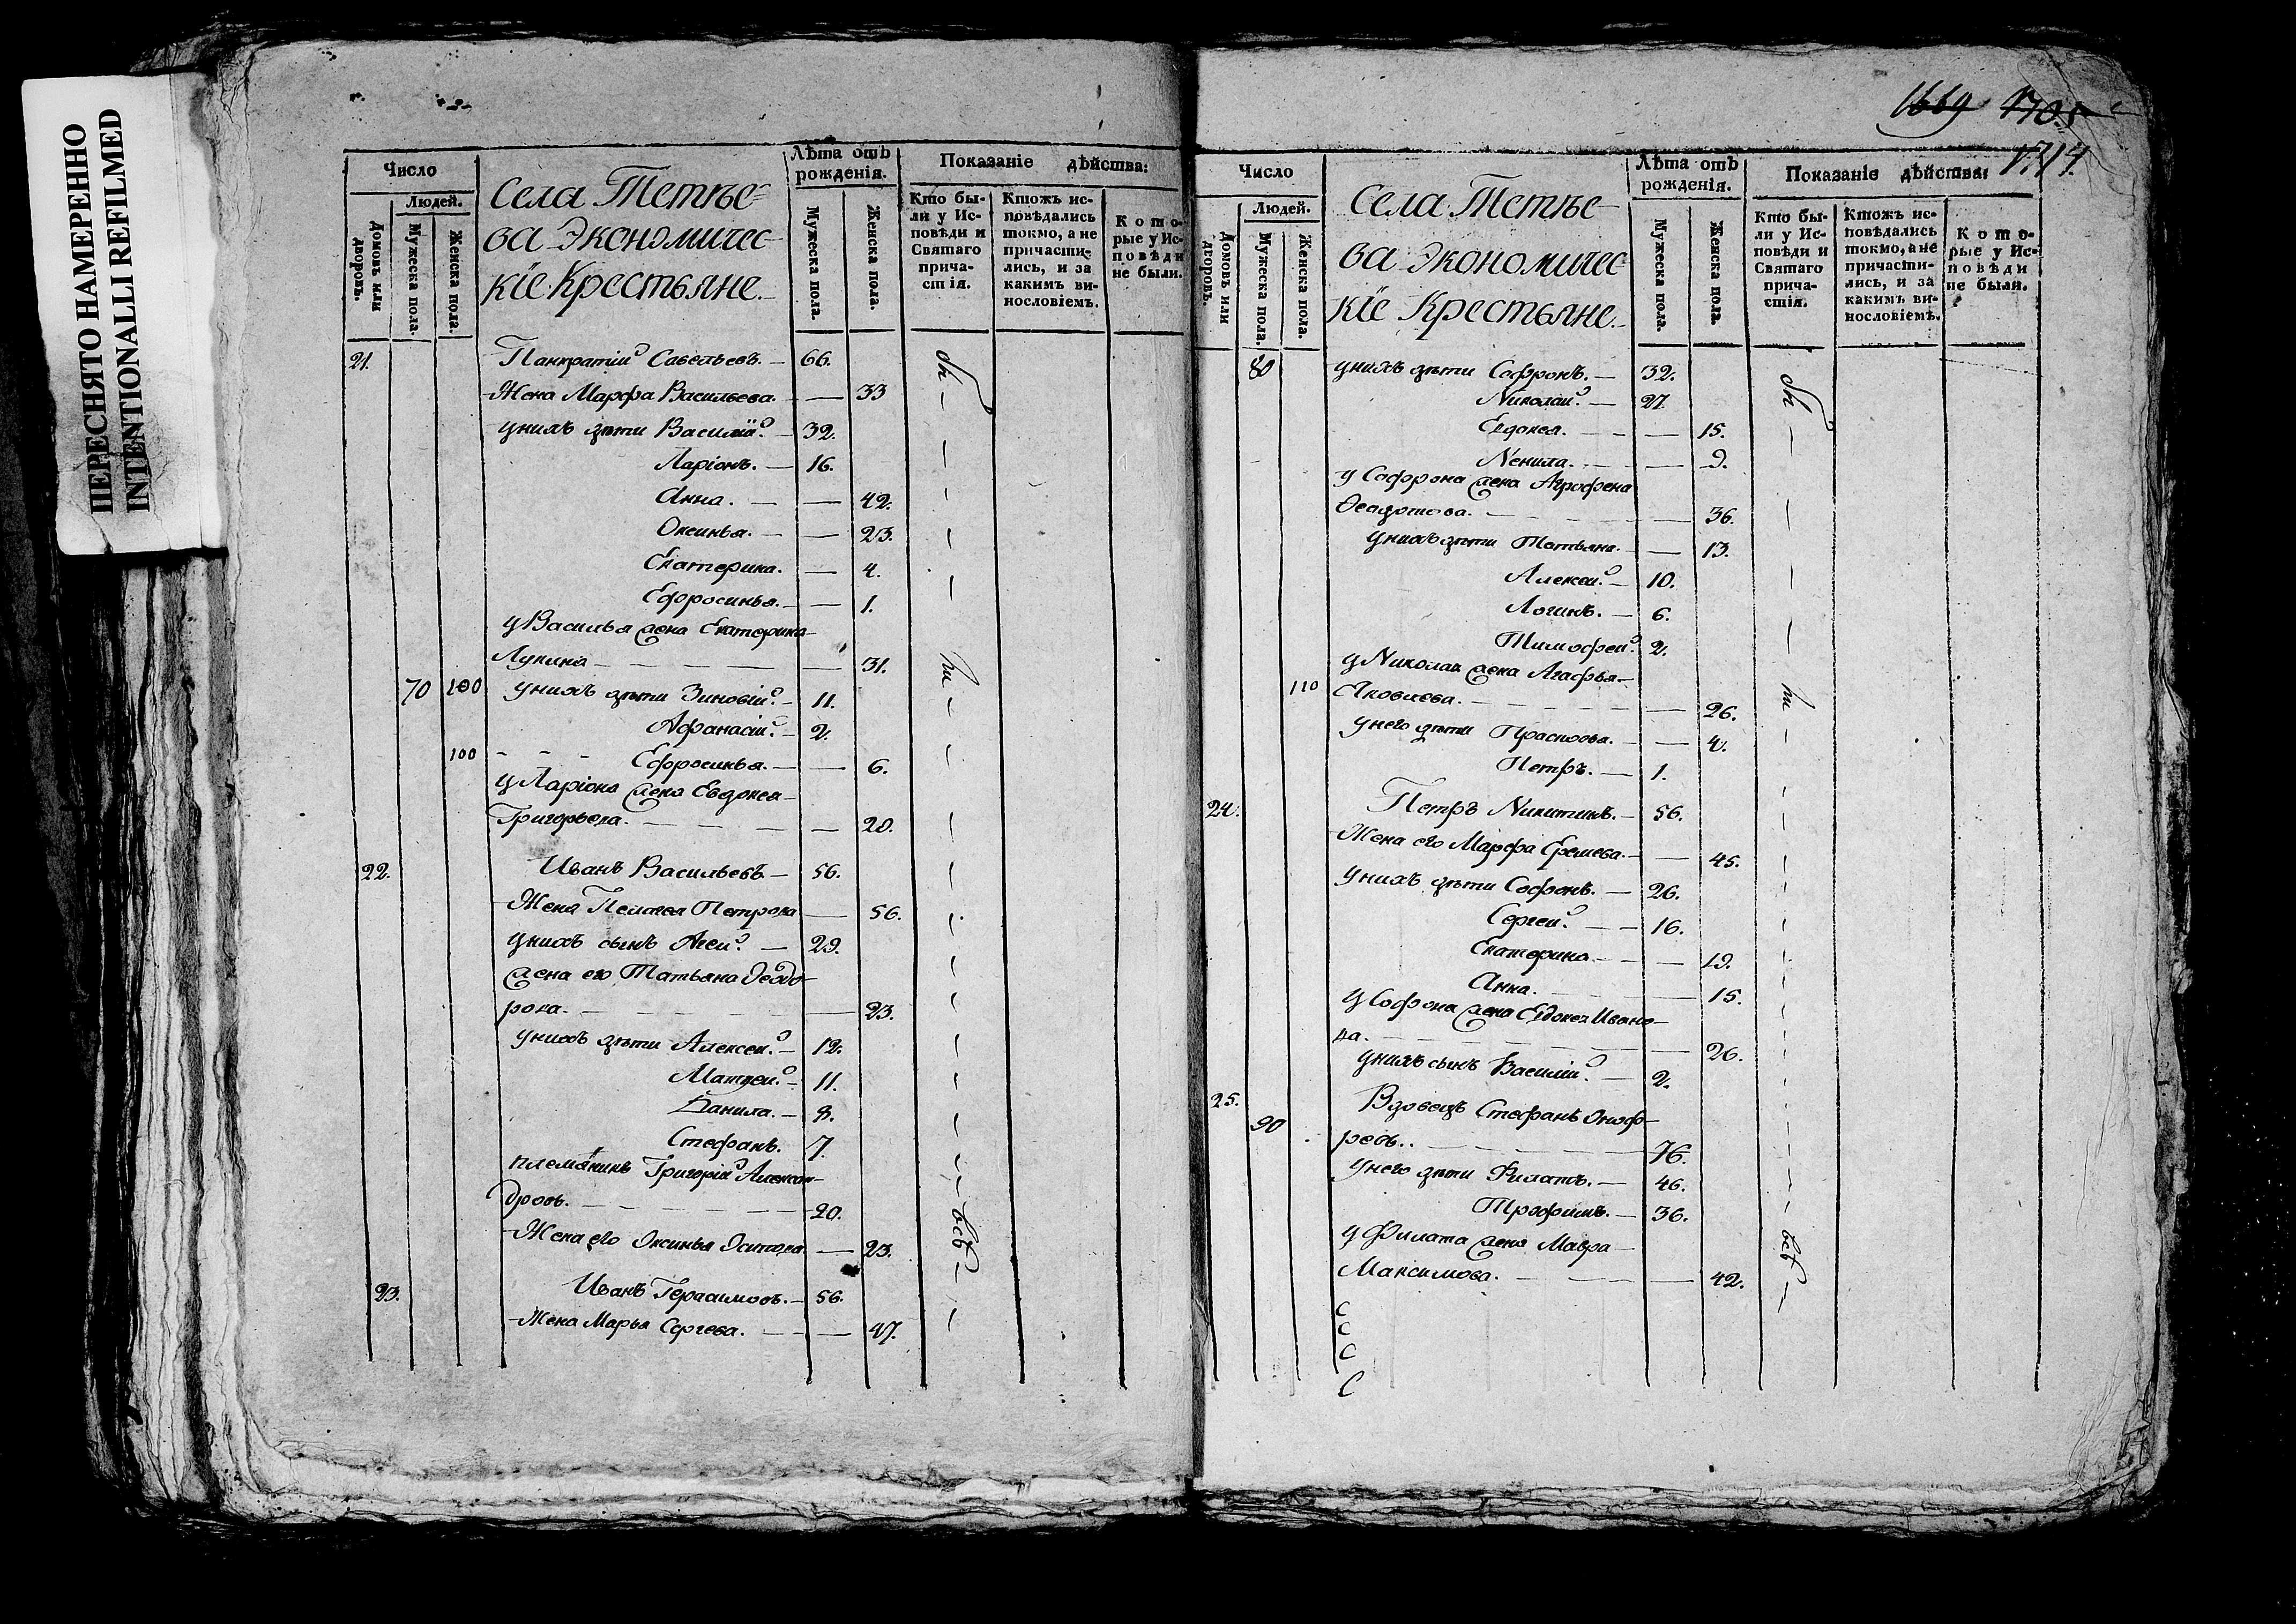 ПЕРЕСНЯТО НАМЕРЕННО
INTENTIONALLI REFILMED
Число
Людей.
Домовъ или дворовъ.
Мужеска пола.
Женска пола.
Села Тетѣе=
ва Экономичес=
кіе Крестьяне.
Лѣта отъ рожденія.
Мужеска пола.
Женска пола.
Показаніе дѣйства:
Кто бы-
ли у Ис-
повѣди и
Святаго
прича-
стія.
Ктожъ ис-
повѣдались
токмо, а не
причасти-
лись, и за
какимъ ви-
нословіемъ.
Кото-
рые у Ис-
повѣди
не были.
21. Панкратіи Савельевъ. — 66.
Жена Марфа Васильева. — 33
унихъ дѣти Василіи. — 32.
Ларіонъ. — 16.
Анна. — 42.
Оксинья. — 23.
Екатерина. — 4.
Ефросинья. — 1.
у Василья жена Екатерина
Лукина — 31.
70 100 унихъ дѣти Зиновіи. — 11.
Афанасіи. — 2.
100 Ефросинья. — 6.
у Ларіона жена Евдокея
Григорьева. — 20.
22. Иванъ Васильевъ. — 56.
Жена Пелагея Петрова — 56.
унихъ сынъ Агеи. — 29.
жена его Татьяна Ѳеодо-
рова. — 23.
унихъ дѣти Алексеи. — 12.
Матѳеи. — 11.
Данила. — 8.
Стефанъ. 7.
племянникъ Григоріи Алексан-
дровъ. — 20.
Жена его Оксинья Осипова — 23.
23. Иванъ Герасимовъ. — 56.
Жена Марья Сергеева. — 47.
всѣ
1669 1705
1714.
Число
Людей.
Домовъ или дворовъ.
Мужеска пола.
Женска пола.
Села Тетѣе-
ва Экономичес-
кіе Крестьяне.
Лѣта отъ рожденія.
Мужеска пола.
Женска пола.
Показаніе дѣйства:
Кто бы-
ли у Ис-
повѣди и
Святаго
прича-
стія.
Ктожъ ис-
повѣдались
токмо, а не
причасти-
лись, и за
какимъ ви-
нословіемъ.
Кото-
рые у Ис-
повѣди
не были.
80 унихъ дѣти Софронъ. — 32.
Николаи. — 27.
Евдокея. — 15.
Ненила. — 9.
у Софрона жена Агрофена
Ѳеодотова. — 36.
унихъ дѣти Татьяна. — 13.
Алексеи. — 10.
Логинъ. — 6.
Тимофеи. 2.
у Николая жена Агафья
110 Яковлева. — 26.
унего дѣти Прасковья. — 4.
Петръ. — 1.
24. Петръ Никитинъ. — 56.
Жена его Марфа Еремева. — 45.
унихъ дѣти Софронъ. — 26.
Сергеи. — 16.
Екатерина. — 19.
Анна. — 15.
у Софрона жена Евдокея Ивано-
ва. — 26.
унихъ сынъ Василіи. — 2.
25. Вдовецъ Стефанъ Онофр-
90 ревъ. — 76.
унего дѣти Филатъ. — 46.
Трофимъ. — 36.
у Филата жена Мавра
Максимова. — 42.
всѣ